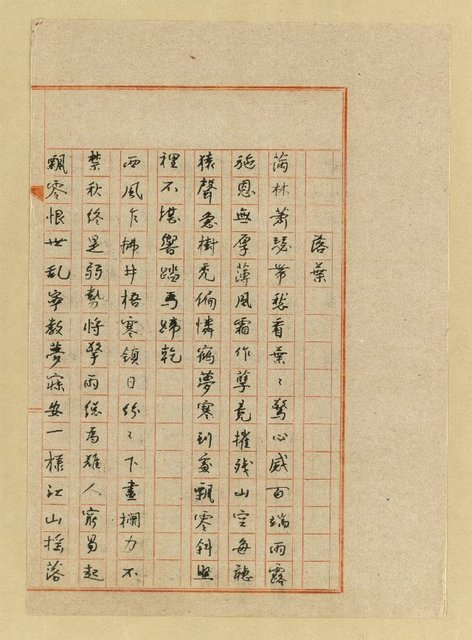 落葉
滿林蕭瑟帶愁看葉〻驚心感百端雨露
施恩無厚薄風霜作孽竟摧殘山空每聽
猿聲急樹禿偏憐鶴夢寒到處飄零斜照
裡不堪響踏馬蹄乾
西風乍拂井梧寒鎮日紛〻下畫欄力不
禁秋終是弱勢將擎雨總為難人窮易起
飄零恨世亂寧教夢寐安一樣江山搖落